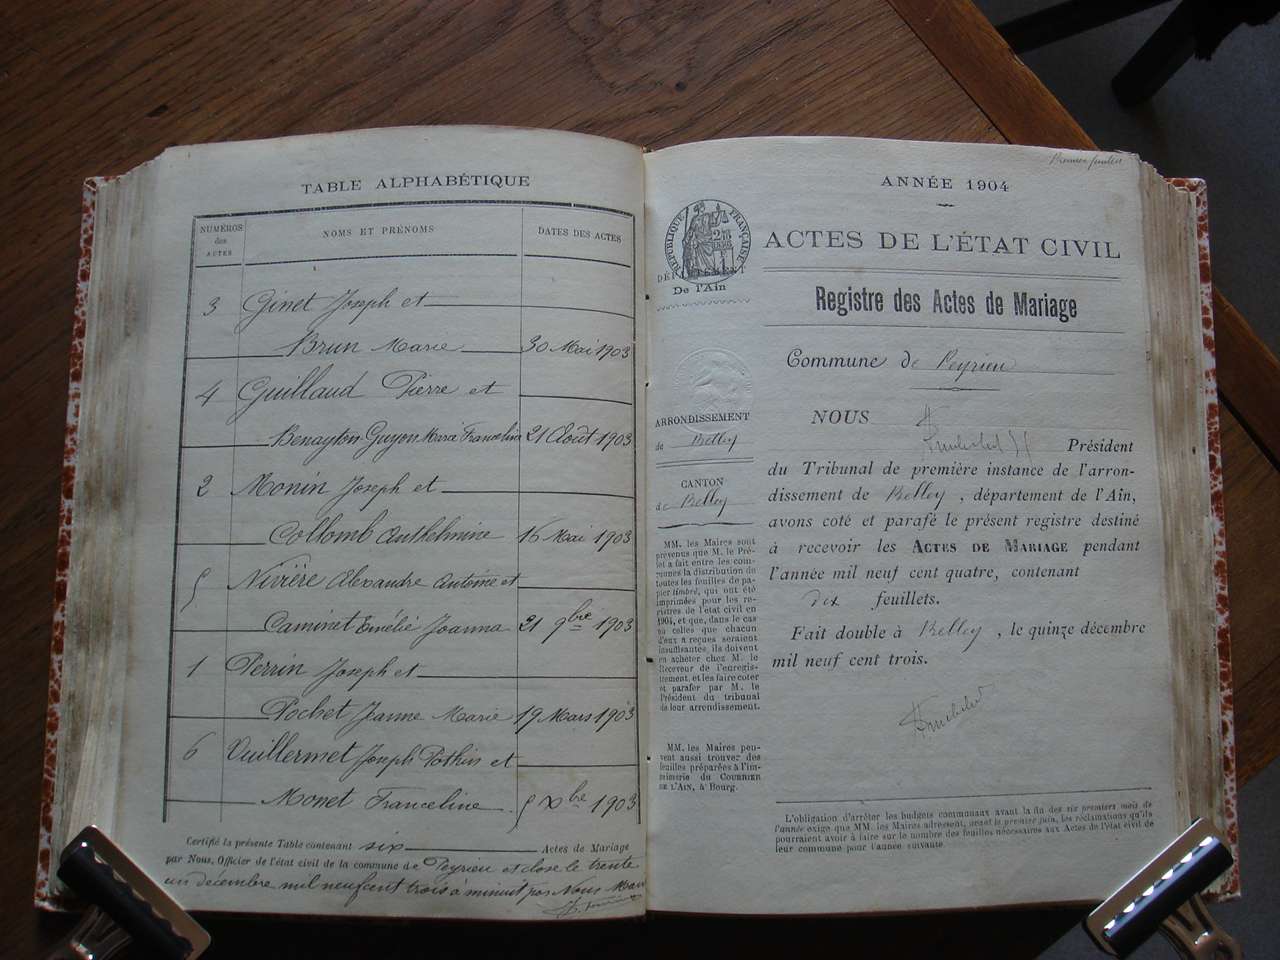 TABLE ALPHABÉTIQUE
NUMÉROS des ACTES
NOMS ET PRÉNOMS
DATES DES ACTES
3 Ginet Joseph et
Brun Marie 30 Mai 1903
4 Guillaud Pierre et
Benayton-Guyon Marie Franceline 21 Août 1903
2 Monin Joseph et
Collomb Anthelmine 16 Mai 1903
5 Nivière Alexandre Antoine et
Caminet Emélie Joanna 21 9bre 1903
1 Perrin Joseph et
Pochet Jeanne Marie 19 Mars 1903
6 Vuillermet Joseph Pothin et
Monet Franceline 5 Xbre 1903
Certifié la présente Table contenant six Actes de Mariage
par Nous, Officier de l'état civil de la commune de Peyrieu et close le trente
un décembre mil neuf cent trois à minuit par Nous Maire
Premier feuillet
ANNÉE 1904
RÉPUBLIQUE FRANÇAISE
DÉPARTEMENT
De l'Ain
ACTES DE L'ÉTAT CIVIL
Registre des Actes de Mariage
Commune de Peyrieu
ARRONDISSEMENT
de Belley
CANTON
de Belley
NOUS
Président
du Tribunal de première instance de l'arron-
dissement de Belley, département de l'Ain,
avons coté et parafé le présent registre destiné
à recevoir les ACTES DE MARIAGE pendant
l'année mil neuf cent quatre, contenant
dix feuillets.
Fait double à Belley, le quinze décembre
mil neuf cent trois.
MM. les Maires sont
prévenus que M. le Pré-
fet a fait entre les com-
munes la distribution de
toutes les feuilles de pa-
pier timbré, qui ont été
imprimées pour les re-
gistres de l'état civil en
1904, et que, dans le cas
où celles que chacun
d'eux a reçues seraient
insuffisantes, ils doivent
en acheter chez M. le
Receveur de l'enregis-
trement, et les faire coter
et parafer par M. le
Président du tribunal
de leur arrondissement.
MM. les Maires peu-
vent aussi trouver des
feuilles préparées à l'im-
primerie du COURRIER
DE L'AIN, à Bourg.
L'obligation d'arrêter les budgets communaux avant la fin des six premiers mois de
l'année exige que MM. les Maires adressent, avant le premier juin, les réclamations qu'ils
pourraient avoir à faire sur le nombre des feuilles nécessaires aux Actes de l'état civil de
leur commune pour l'année suivante